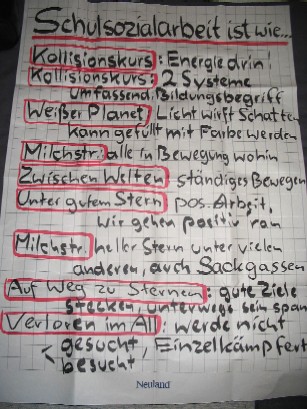 Schulsozialarbeit ist wie...
Kollisionskurs: Energie drin!
Kollisionskurs: 2 Systeme
umfassend. Bildungsbegriff
Weißer Planet Licht wirft Schatten
kann gefüllt mit Farbe werden
Milchstr. alle in Bewegung wohin
Zwischen Welten ständiges Bewegen
Unter gutem Stern pos. Arbeit,
wir gehen positiv ran
Milchstr. heller Stern unter vielen
anderen, auch Sackgassen
Auf Weg zu Sternen: gute Ziele
stecken, unterwegs sein span
Verloren im All: werde nicht
gesucht, Einzelkämpfert
besucht
Neuland